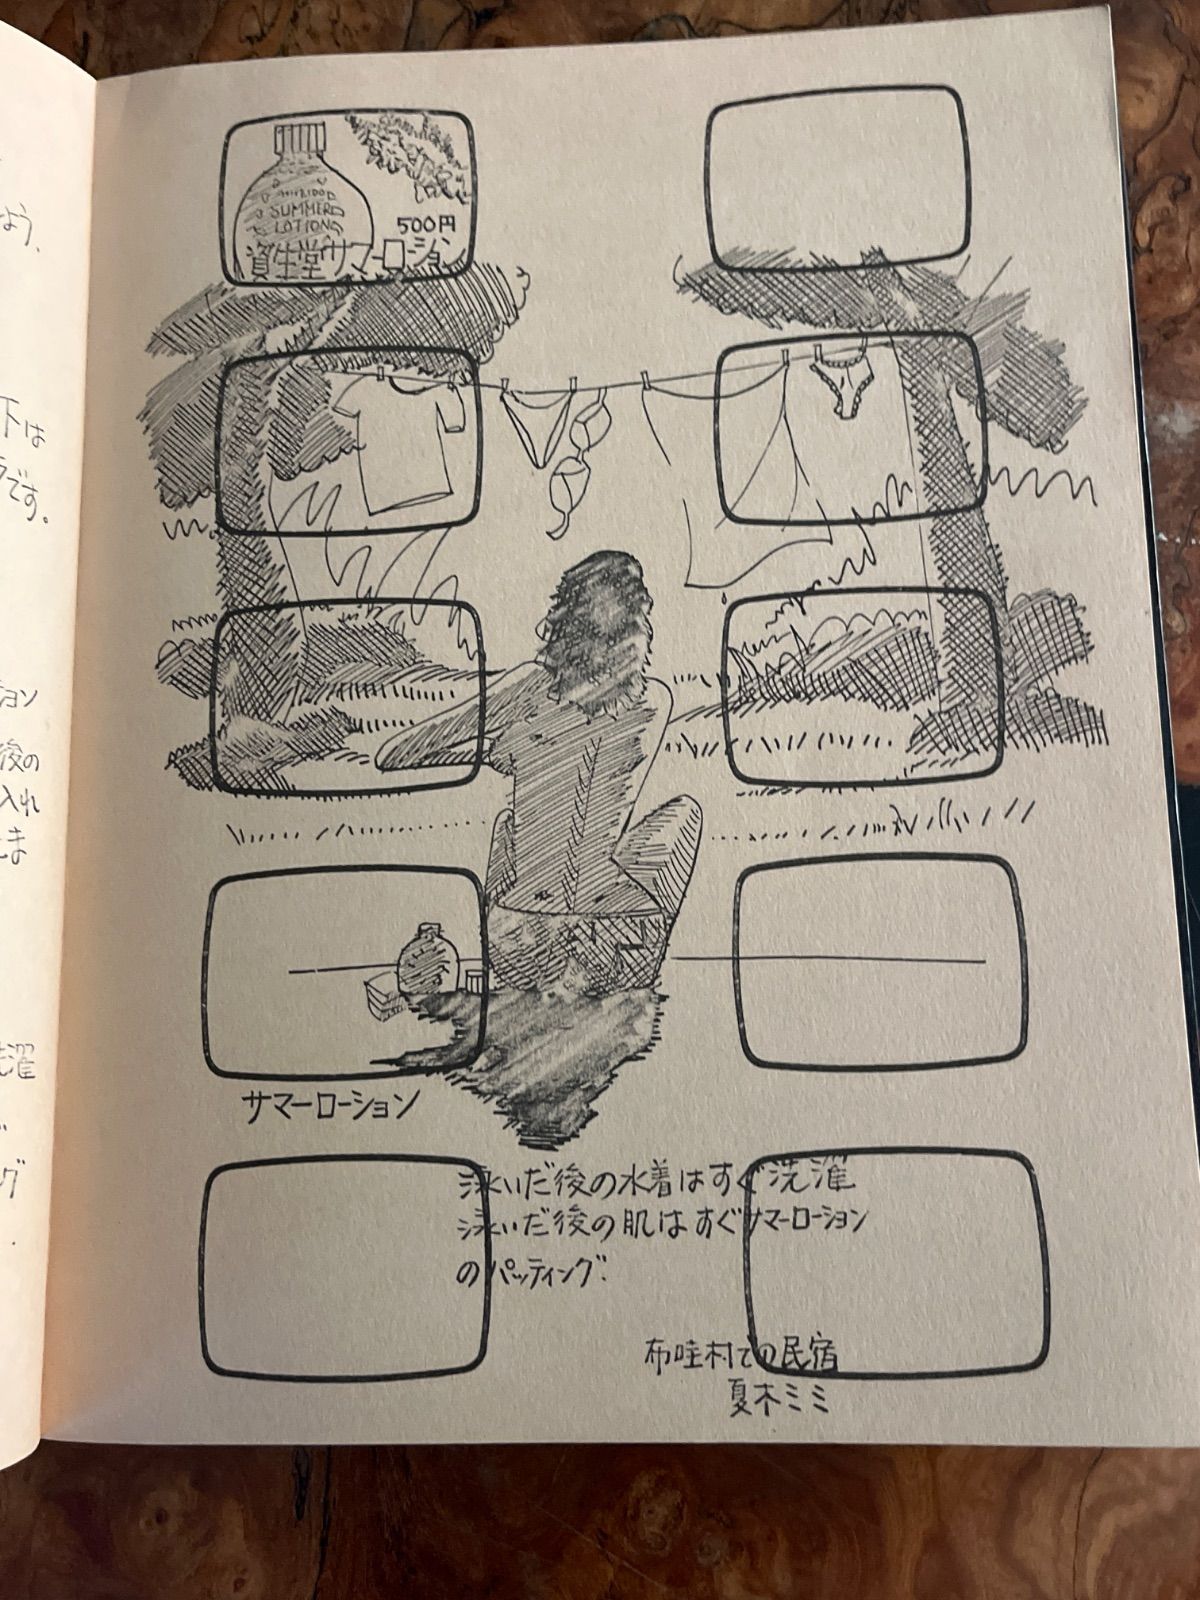 よう、
SUMMER
LOTION
500円
資生堂サマーローション
下は
です。
ョン
後の
入れ
ま
濯
グ
サマーローション
泳いだ後の水着はすぐ洗濯
泳いだ後の肌はすぐサマーローション
のパッティング.
布哇村での民宿
夏木ミミ